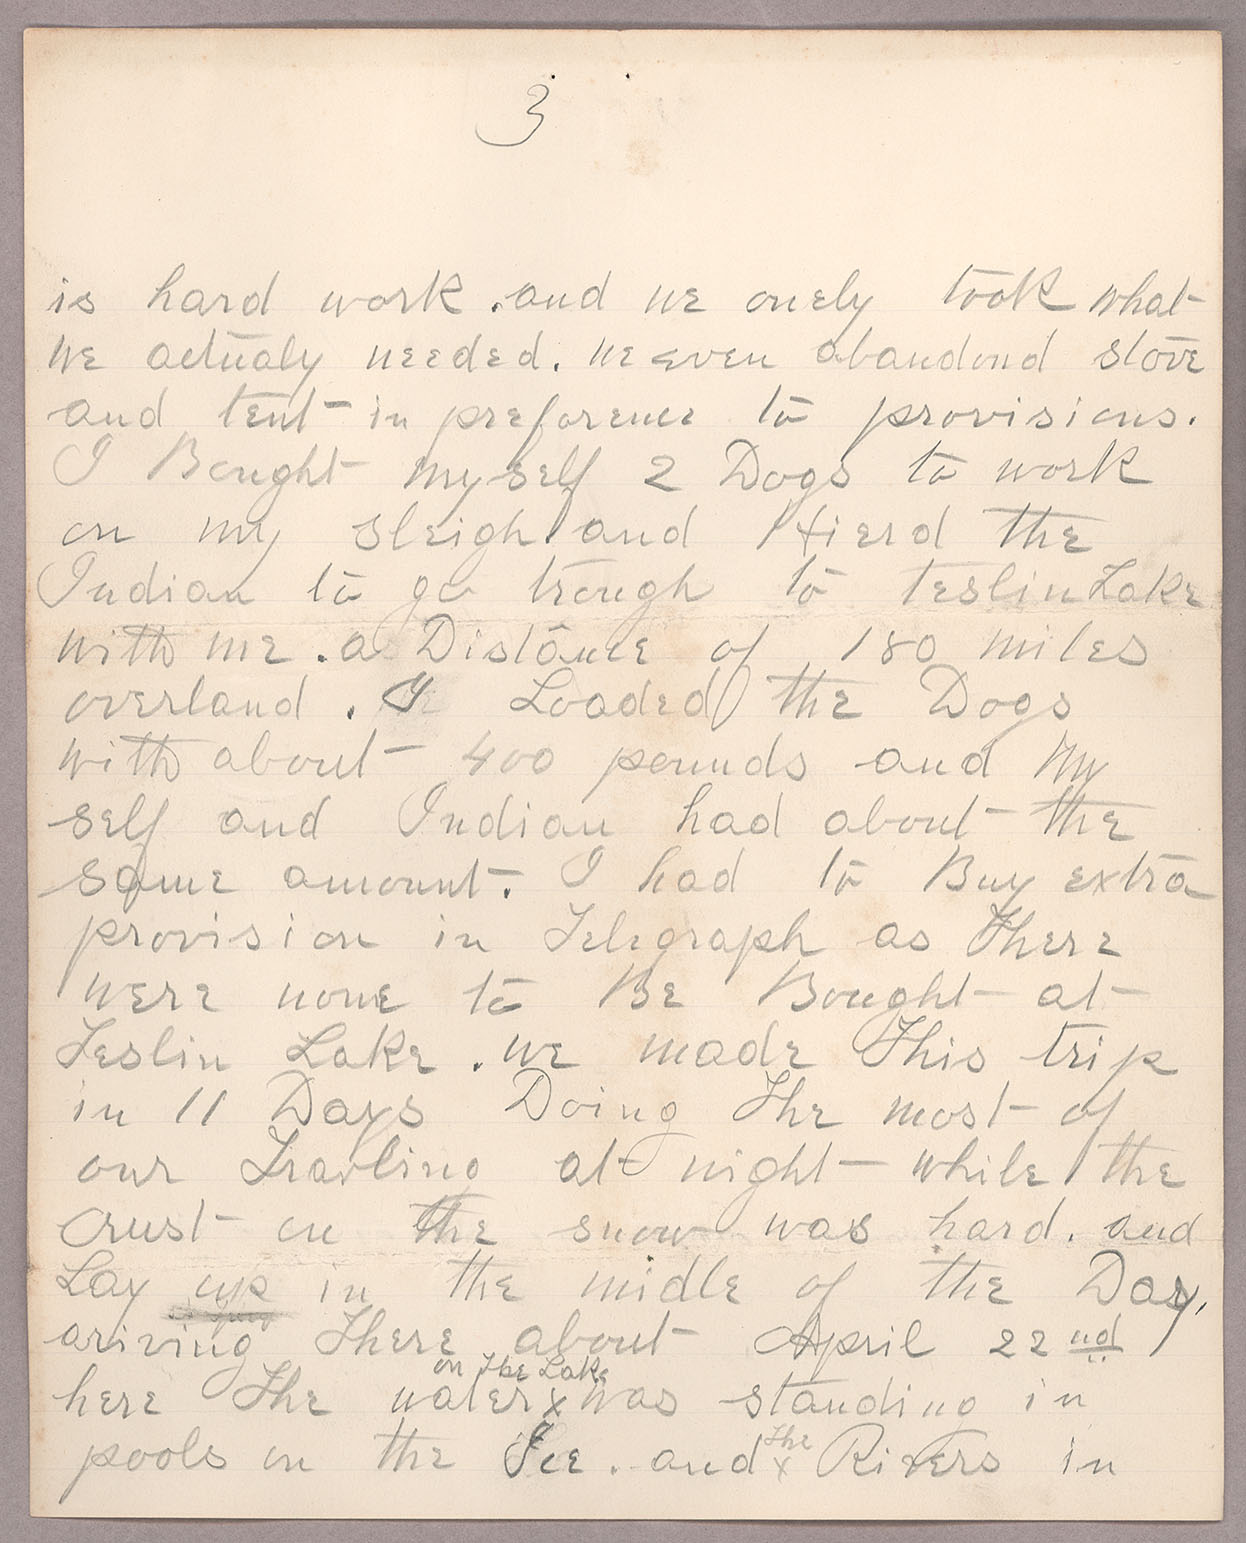 3
is hard work. and we onely took what
we actualy needed. we even abandond stove
and tent in preference to provisions.
I Bought myself 2 Dogs to work
on my sleigh and Hierd the
Indian to go trough to Teslin Lake
with me. a Distance of 180 miles
overland. I Loaded the Dogs
with about 400 pounds and My
self and Indian had about the
same amount. I had to Buy extra
provision in Telegraph as There
were none to Be Bought at
Teslin Lake. we made This trip
in 11 Days Doing The most of
our Travling at night while the
crust on the snow was hard. and
Lay up in the midle of the Day,
ariving There about April 22nd
on The Lake
here The water x was standing in
The
pools on the Ice. and x Rivers in